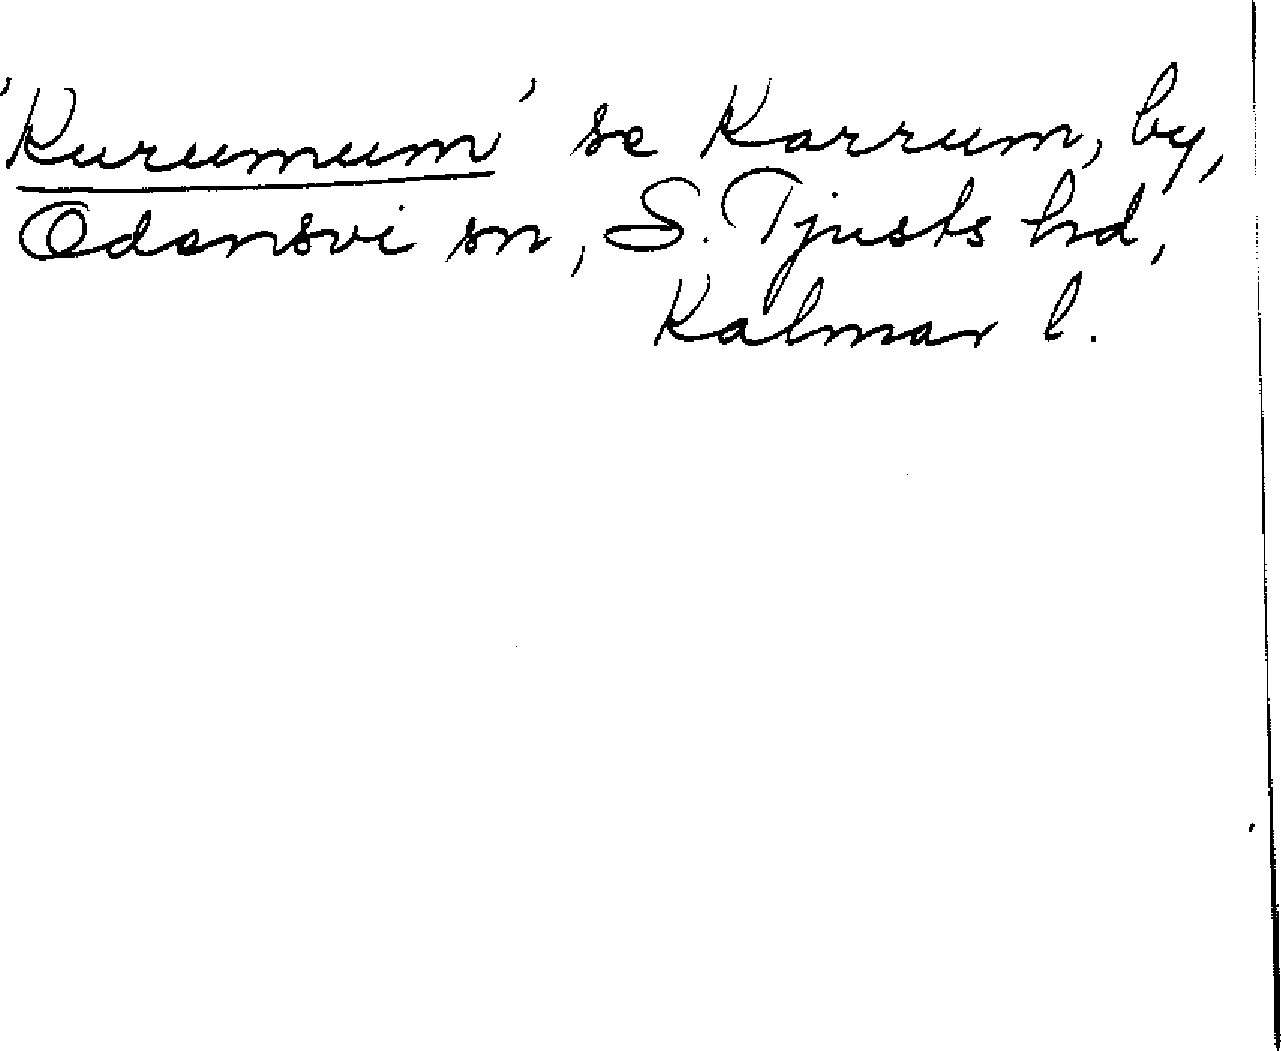 'Kurumum' se Karrum, by,
Odensvi sn, S. Tjusts hd,
Kalmar l.